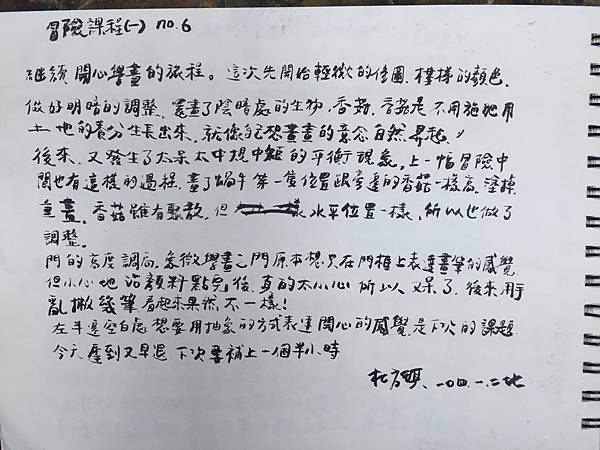 冒險課程(一) no.6
繼續開心學畫的旅程。這次先開始輕微的修圖,樓梯的顏色,
做好明暗的調整,還畫了陰暗處的生物,香菇。香菇是不用施肥用
土地的養分生長出來,就像自己想畫畫的意念自然昇起。
後來,又發生了太呆太中規中矩的平衡現象。上一幅冒險中
間也有這樣的過程。畫了蝸牛第一隻位置跟旁邊的香菇一樣高,塗掉
重畫。香菇雖有聚散,但 水平位置一樣,所以也做了
調整。
門的高度調高。象徵學畫之門原本想只在門框上表達畫筆的感覺
但小心地沾顏料點完後,真的太小心所以又呆了,後來用手
亂撇幾筆看起來果然不一樣!
左半邊空白處想要用抽象的方式表達開心的感覺是下次的課題
今天遲到又早退,下次要補上一個半小時
一〇四.一.二